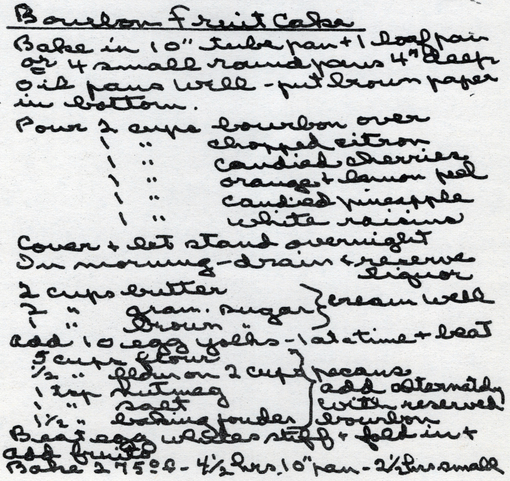 Bourbon Fruit Cake
Bake in 10" tube pan + 1 loaf pan
or 4 small round pans 4" deep
Oil pans well - put brown paper
in bottom.
Pour 2 cups bourbon over
1 " chopped citron
1 " candied cherries
1 " orange + lemon peel
1 " candied pineapple
1 " white raisins
Cover + let stand overnight
In morning - drain & reserve
liquor
2 cups butter
2 " gran. sugar } cream well
1 " brown "
add 10 egg yolks - 1 at a time + beat
5 cups flour
1/2 " flour on 2 cups pecans
1 tsp nutmeg } add alternately
1 " salt with reserved
1 1/2 " baking powder bourbon
Beat egg whites stiff + fold in +
add fruits
Bake 275° - 4 1/2 hrs. 10" pan - 2 1/2 hrs small